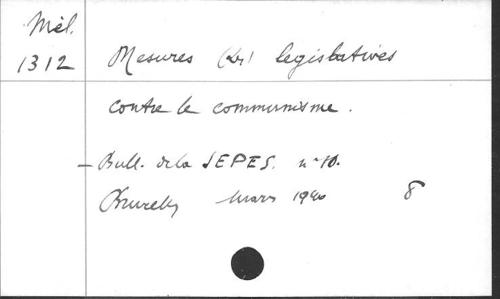 Mél.
1312
Mesures (Les) législatives
contre le communisme.
– Bull. de la SEPES. n° 10.
Bruxelles mars 8